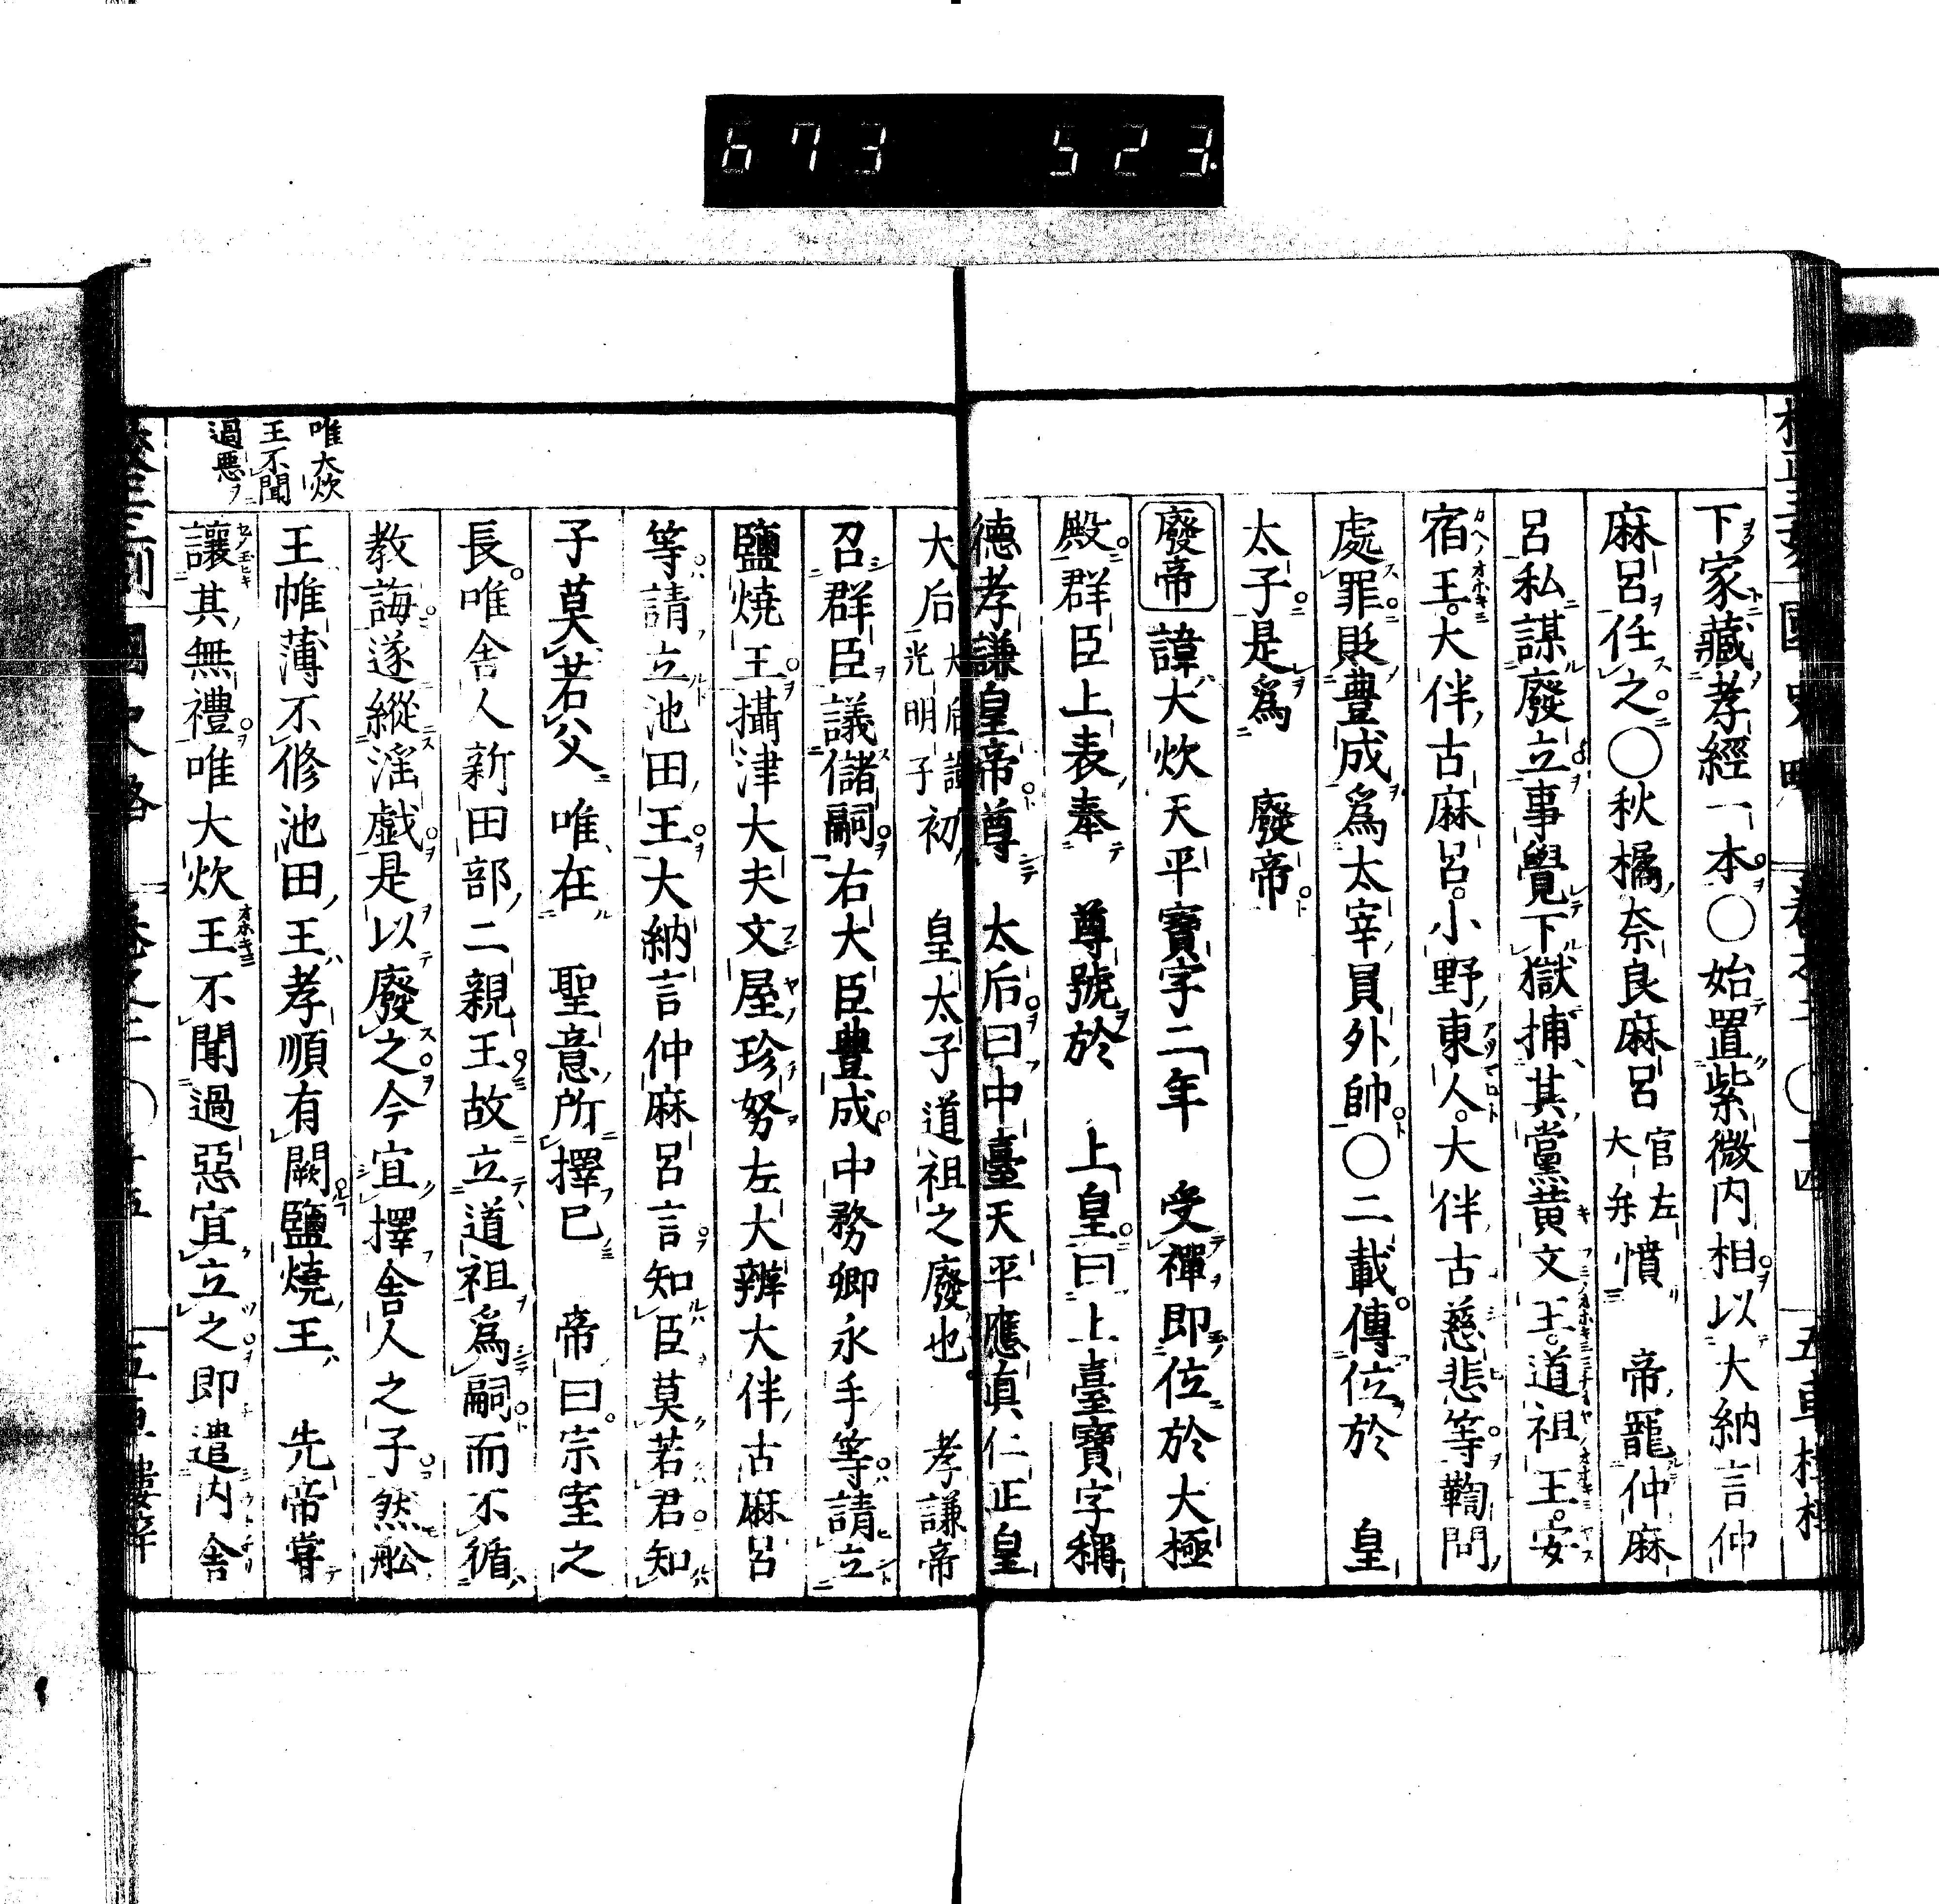 673 523
下家藏孝經一本〇始置紫微内相以大納言仲
麻呂任之〇秋橘奈良麻呂官左大弁憤 帝寵仲麻
呂私謀廢立事覺下獄捕其黨黄文王道祖王安
宿王大伴古麻呂小野東人大伴古慈悲等鞫問
處罪貶豊成爲太宰員外帥〇二載傳位於 皇
太子是爲 廢帝
廢帝諱大炊天平寶字二年 受禪即位於大極
殿群臣上表奉 尊號於 上皇曰上臺寶字稱
德孝謙皇帝尊 太后曰中臺天平應真仁正皇
大后大后諱光明子初 皇太子道祖之廢也 孝謙帝
召群臣議儲嗣右大臣豊成中務卿永手等請立
鹽燒王攝津大夫文屋珍努左大辨大伴古麻呂
等請立池田王大納言仲麻呂言知臣莫若君知
子莫若父 唯在 聖意所擇已 帝曰宗室之
長唯舍人新田部二親王故立道祖爲嗣而不循
教誨遂縱淫戲是以廢之今宜擇舍人之子然舩
王帷薄不修池田王孝順有闕鹽燒王 先帝甞
讓其無禮唯大炊王不聞過惡宜立之即遣内舍
唯大炊
王不聞
過惡ヲ